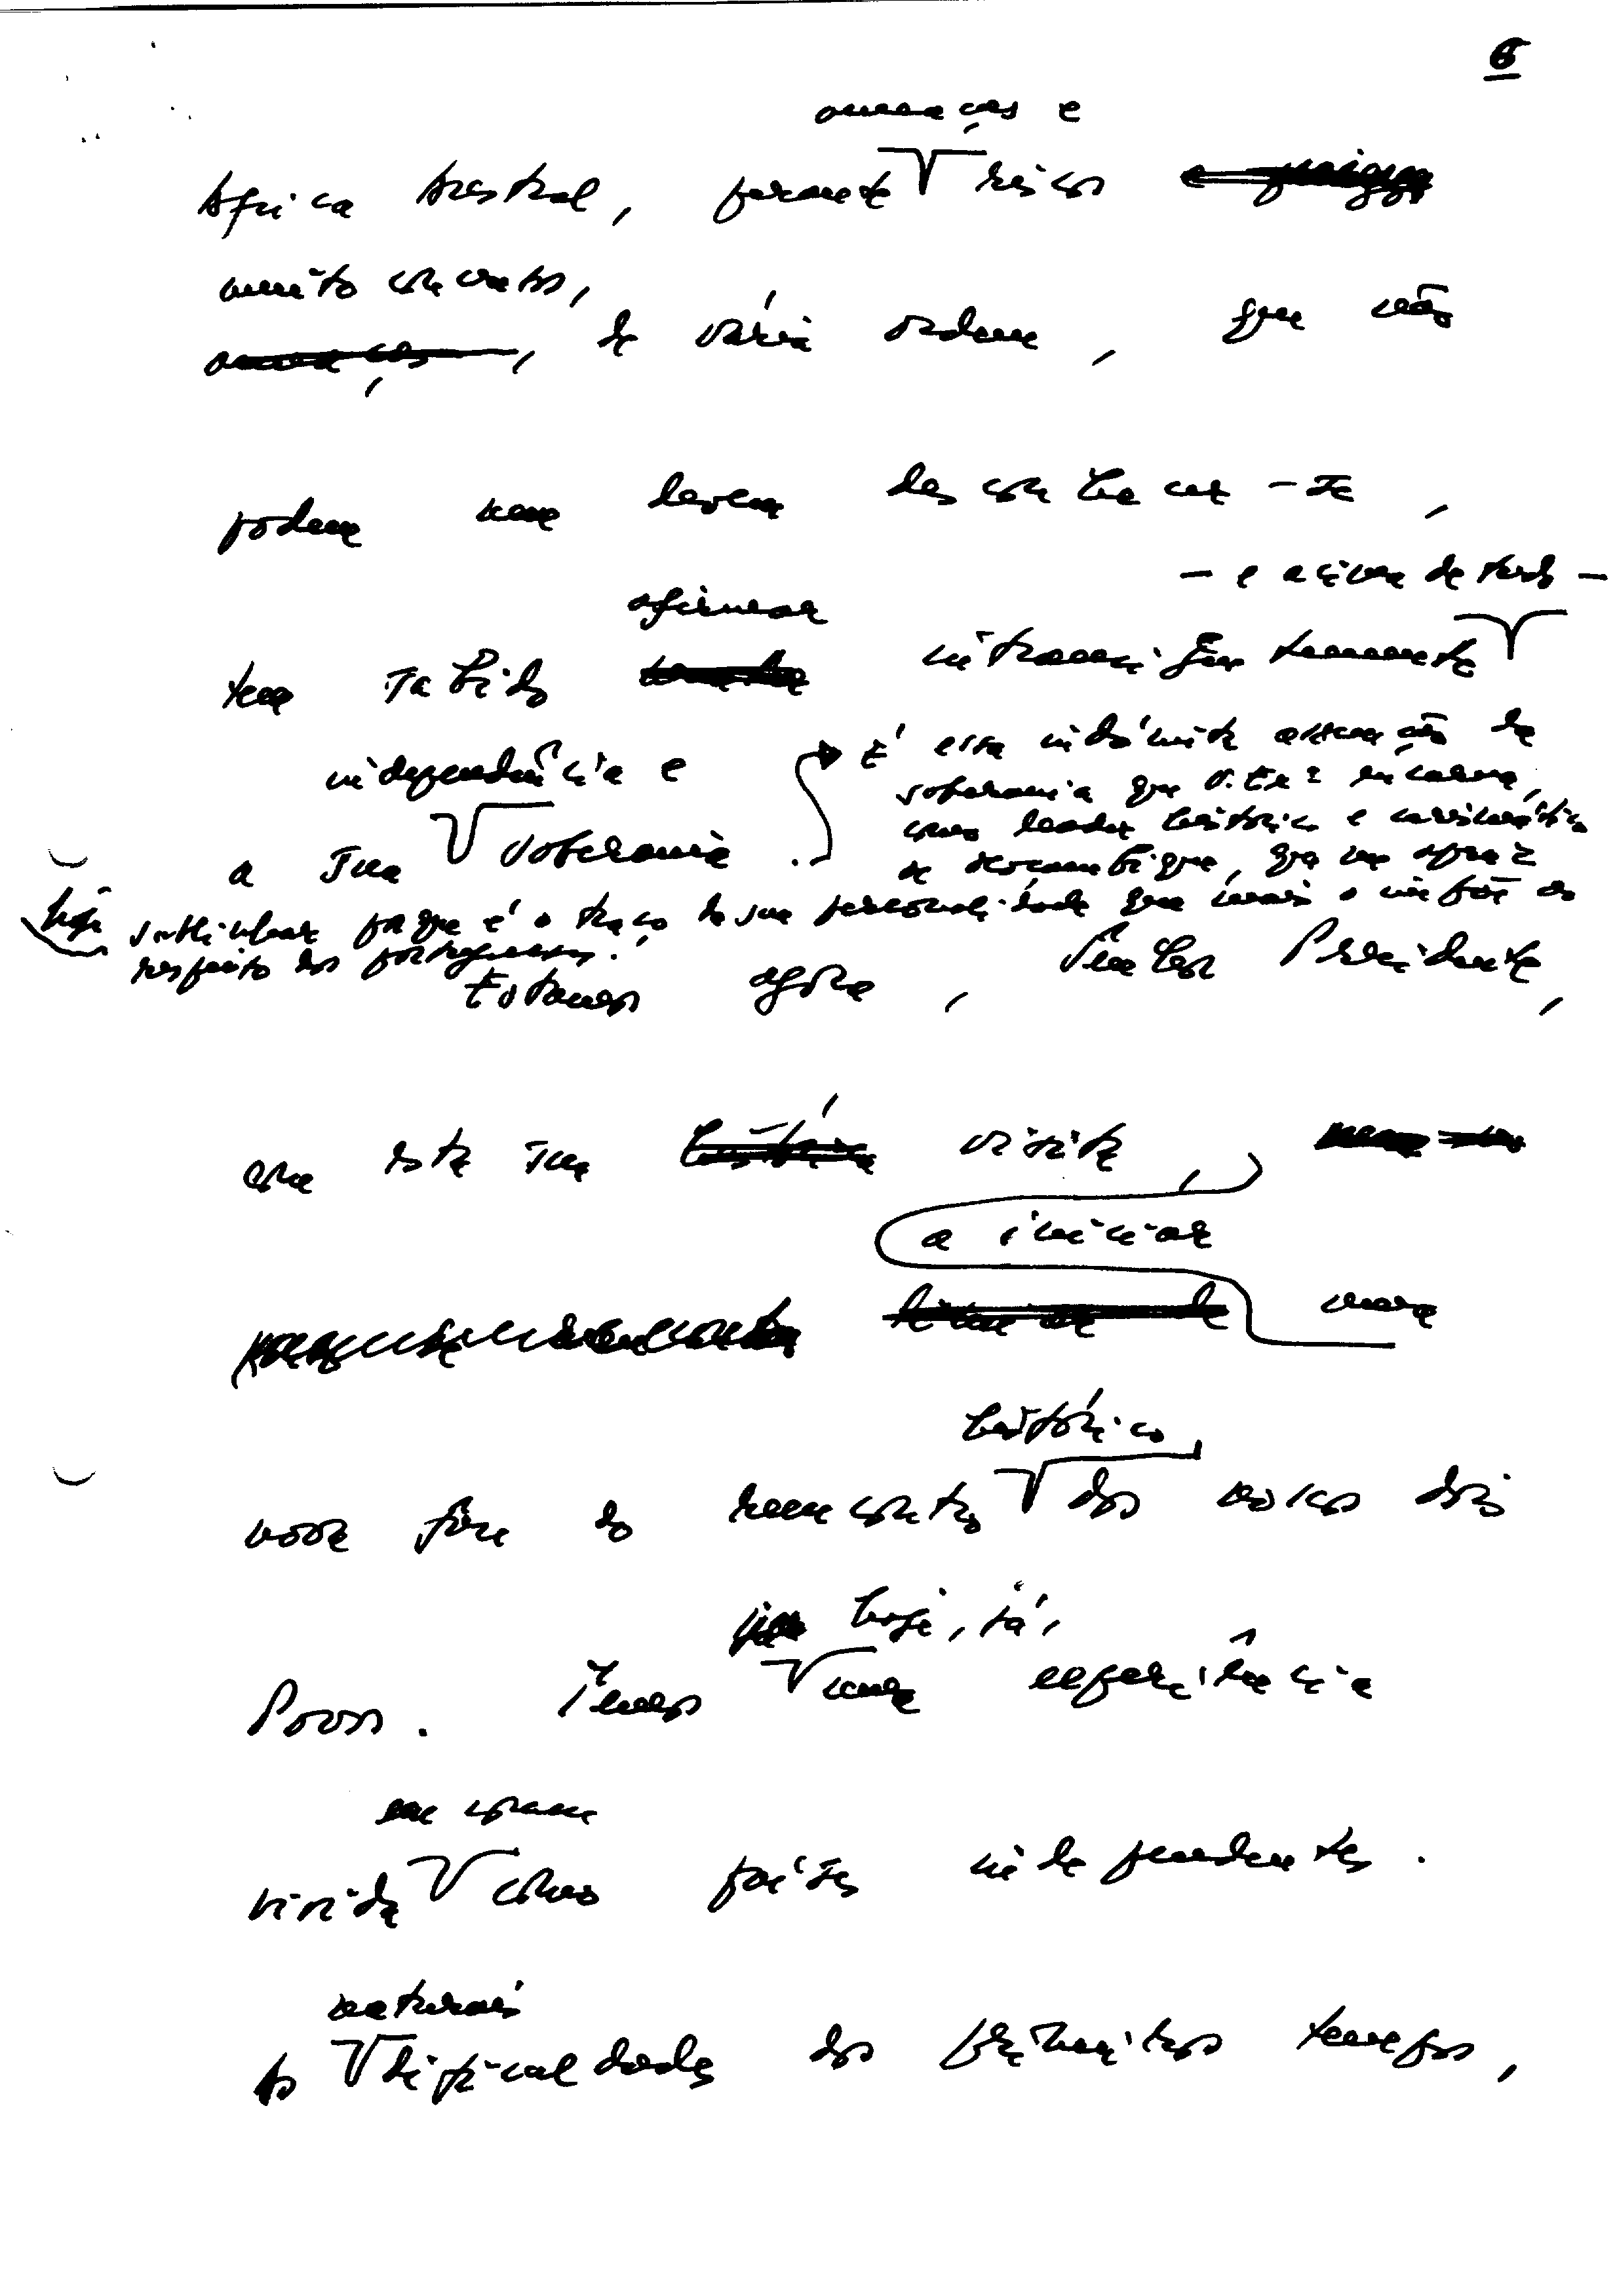 6
ameaças e
África Austral, perante riscos
muito concretos,
ameaças, de vária ordem, que não
podem nem devem desconhecer-se,
- e acima de tudo -
afirmar
tem sabido intransigentemente
independência e
a sua soberania.
É essa indómita afirmação de
soberania que V. Exª encarna,
como leader histórico e carismático
de Moçambique, que me apraz
hoje sublinhar porque é o traço da sua personalidade que mais o impõe ao
respeito dos portugueses.
Estamos agora, Senhor Presidente,
com esta sua histórica visita,
a iniciar
uma
histórico,
nova fase do reencontro dos nossos dois
hoje, já,
Povos. Temos uma experiência
em comum
vivida como países independentes.
naturais
As dificuldades dos primeiros tempos,